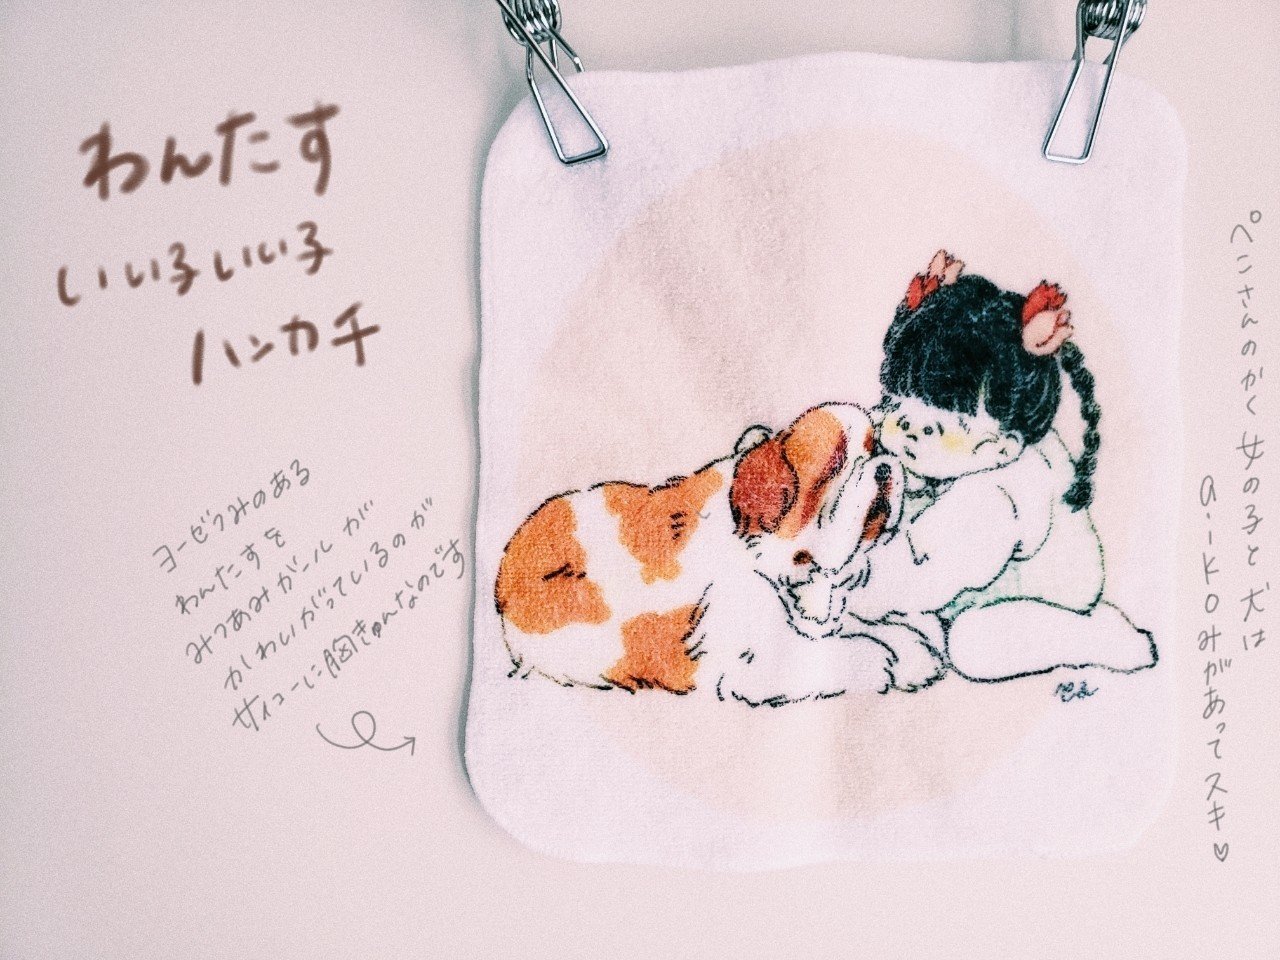 わんたす
いい子いい子
ハンカチ
ヨービつみのある
わんたすを
みつあみガールが
かわいがっているのが
サイコーに胸きゅんなのです
ペンさんのかく女の子と犬は
a.i.koみがあってスキ♡